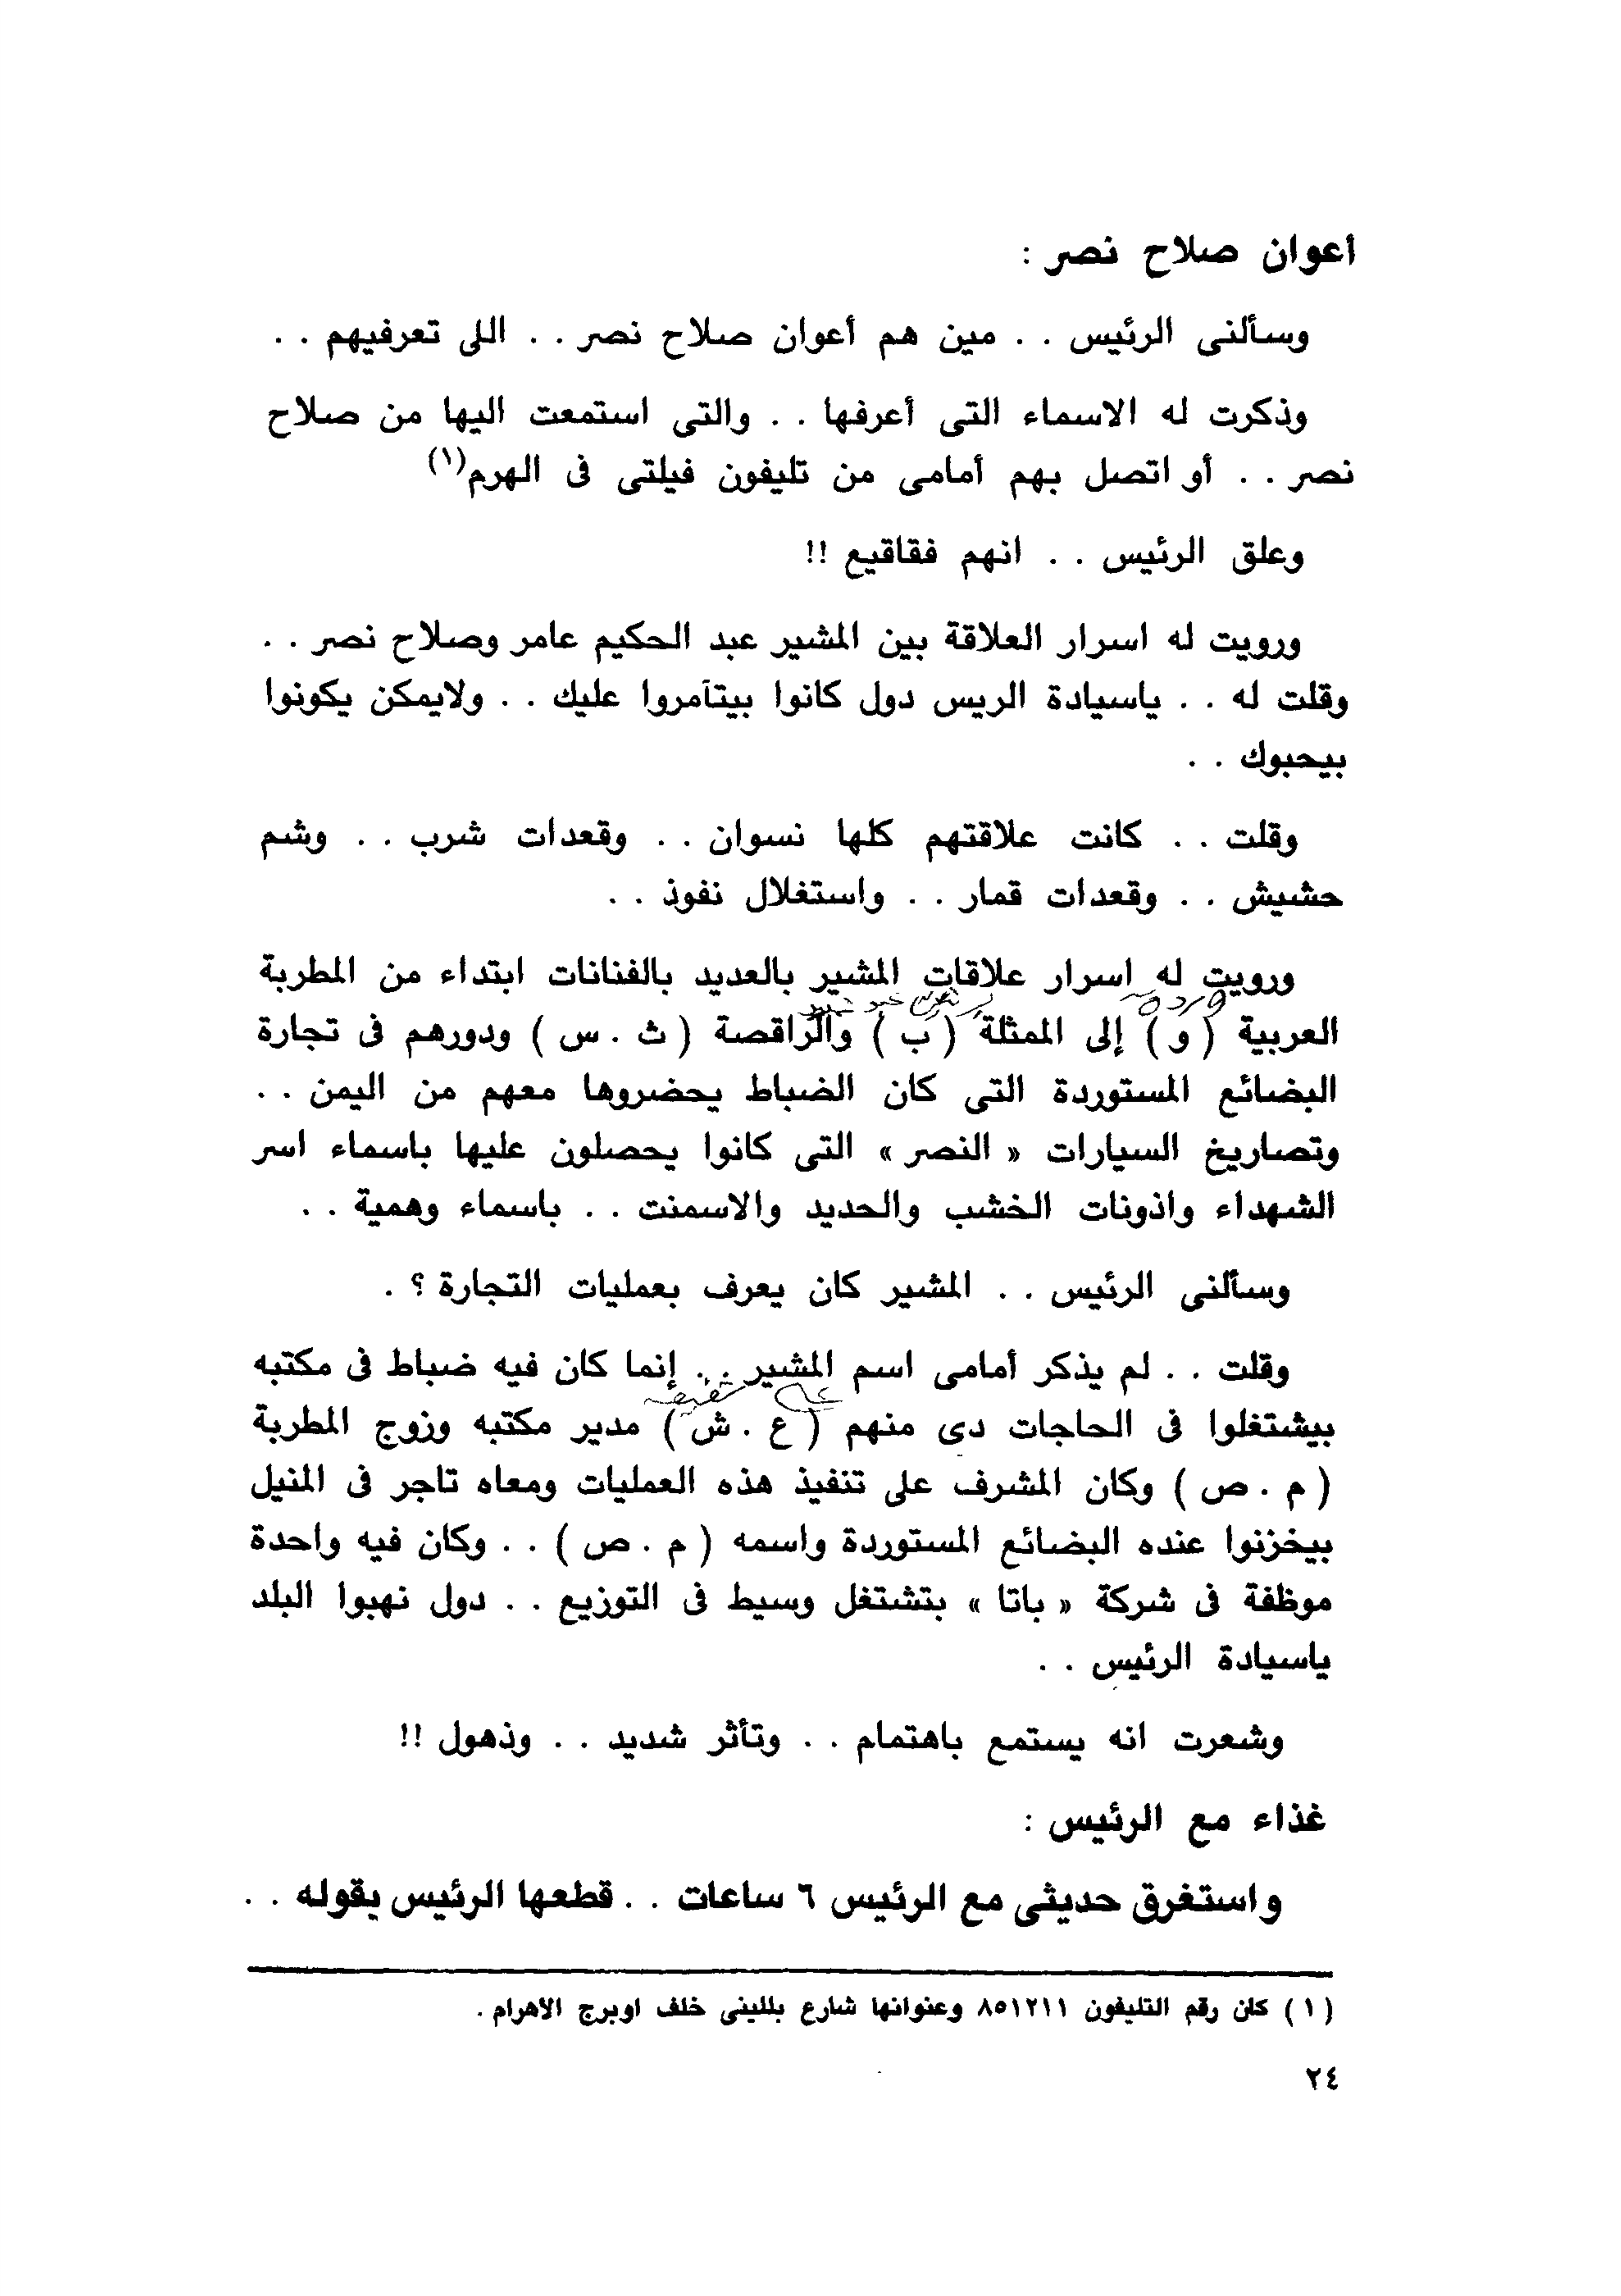 أعوان صلاح نصر :
وسألنى الرئيس . . مين هم أعوان صلاح نصر . . اللى تعرفيهم . .
وذكرت له الاسماء التى أعرفها . . والتى استمعت اليها من صلاح
نصر . . أو اتصل بهم أمامى من تليفون فيلتى فى الهرم(١)
وعلق الرئيس . . انهم فقاقيع !!
ورويت له اسرار العلاقة بين المشير عبد الحكيم عامر وصلاح نصر . .
وقلت له . . ياسيادة الريس دول كانوا بيتآمروا عليك . . ولايمكن يكونوا
بيحبوك . .
وقلت . . كانت علاقتهم كلها نسوان . . وقعدات شرب . . وشم
حشيش . . وقعدات قمار . . واستغلال نفوذ . .
ورويت له اسرار علاقات المشير بالعديد بالفنانات ابتداء من المطربة
وردة
العربية ( و ) إلى الممثلة ( ب ) والراقصة ( ث . س ) ودورهم فى تجارة
البضائع المستوردة التى كان الضباط يحضروها معهم من اليمن . .
وتصاريخ السيارات « النصر » التى كانوا يحصلون عليها باسماء اسر
الشهداء واذونات الخشب والحديد والاسمنت . . باسماء وهمية . .
وسألنى الرئيس . . المشير كان يعرف بعمليات التجارة ؟ .
وقلت . . لم يذكر أمامى اسم المشير . . إنما كان فيه ضباط فى مكتبه
على شفيق
بيشتغلوا فى الحاجات دى منهم ( ع . ش ) مدير مكتبه وزوج المطربة
( م . ص ) وكان المشرف على تنفيذ هذه العمليات ومعاه تاجر فى المنيل
بيخزنوا عنده البضائع المستوردة واسمه ( م . ص ) . . وكان فيه واحدة
موظفة فى شركة « باتا » بتشتغل وسيط فى التوزيع . . دول نهبوا البلد
ياسيادة الرئيس . .
وشعرت انه يستمع باهتمام . . وتأثر شديد . . وذهول !!
غذاء مع الرئيس :
واستغرق حديثى مع الرئيس ٦ ساعات . . قطعها الرئيس بقوله . .
( ١ ) كان رقم التليفون ٨٥١٢١١ وعنوانها شارع بللينى خلف اوبرج الاهرام .
٢٤